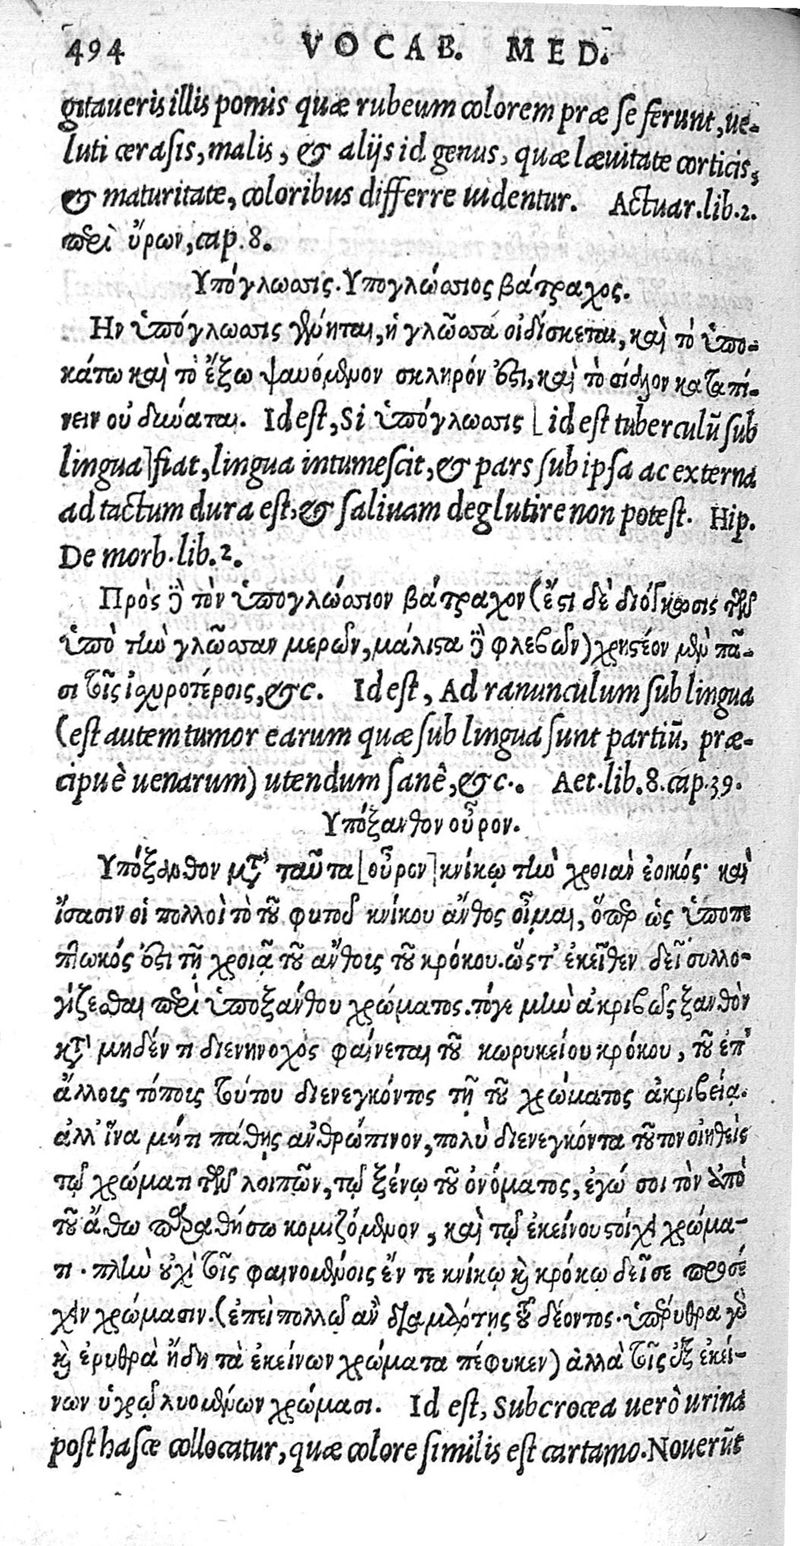 494 VOCAB. MED.
gitaueris illis pomis quæ rubeum colorem præ se ferunt, ue-
luti cerasis, malis, & alijs id genus, quæ læuitate corticis,
& maturitate, coloribus differre uidentur. Actuar. lib. 2.
περὶ ὔρων, cap. 8.
Υπόγλωσσις. Υπογλώσσιος βάτραχος.
Ην ὑπόγλωσσις γένηται, ἡ γλῶσσα οἰδίσκεται, καὶ τὸ ὑπο-
κάτω καὶ τὸ ἔξω ψαυόμενον σκληρόν ἐστι, καὶ τὸ σίελον καταπί-
νειν οὐ δύναται. Id est, Si ὑπόγλωσσις [id est tuberculũ sub
lingua] fiat, lingua intumescit, & pars sub ipsa ac externa
ad tactum dura est, & saliuam deglutire non potest. Hip.
De morb. lib. 2.
Πρὸς ἢ τὸν ὑπογλώσσιον βάτραχον (ἔστι δὲ διόγκωσις τῶν
ὑπὸ τὴν γλῶσσαν μερῶν, μάλιστα ἢ φλεβῶν) χρηστέον μὲν πᾶ-
σι τοῖς ἰσχυροτέροις, &c. Id est, Ad ranunculum sub lingua
(est autem tumor earum quæ sub lingua sunt partiũ, præ-
cipuè uenarum) utendum sanè, &c. Aet. lib. 8. cap. 39.
Υπόξανθον οὖρον.
Υπόξανθον μετὰ ταῦτα [οὖρον] κνίκῳ τὴν χροιὰν ἐοικός· καὶ
ἴσασιν οἱ πολλοὶ τὸ τοῦ φυτοῦ κνίκου ἄνθος οἶμαι, ὅπερ ὡς ὑποπε
πλωκός ἐστι τῇ χροιᾷ τοῦ ἄνθοις τοῦ κρόκου. ὥστ' ἐκεῖθεν δεῖ συλλο-
γίζεσθαι περὶ ὑποξάνθου χρώματος. τόγε μὴν ἀκριβῶς ξανθὸν
κατὰ μηδέν τι διενηνοχὸς φαίνεται τοῦ κωρυκείου κρόκου, τοῦ ἐπ'
ἄλλοις τόποις τούτου διενεγκόντος τῇ τοῦ χρώματος ἀκριβείᾳ.
ἀλλ' ἵνα μήτι πάθῃς ἀνθρώπινον, πολὺ διενεγκόντα τοῦτον οἰηθεὶς
τῷ χρώματι τῶν λοιπῶν, τῷ ξένῳ τοῦ ὀνόματος, ἐγώ σοι τὸν ἀπὸ
τοῦ ἄθω παραθήσω κομιζόμενον, καὶ τῷ ἐκείνου στοίχει χρώμα-
τι. πλὴν οὐχὶ τοῖς φαινομένοις ἔν τε κνίκῳ καὶ κρόκῳ δεῖ σε προσέ
χειν χρώμασιν. (ἐπεὶ πολλῷ ἂν διαμάρτῃς τοῦ δέοντος. ὑπέρυθρα γὰρ
καὶ ἐρυθρὰ ἤδη τὰ ἐκείνων χρώματα πέφυκεν) ἀλλὰ τοῖς ἐξ ἐκεί-
νων ὑγρῷ λυομένων χρώμασι. Id est, Subcrocea uerò urina
post hasce collocatur, quæ colore similis est cartamo. Nouerũt